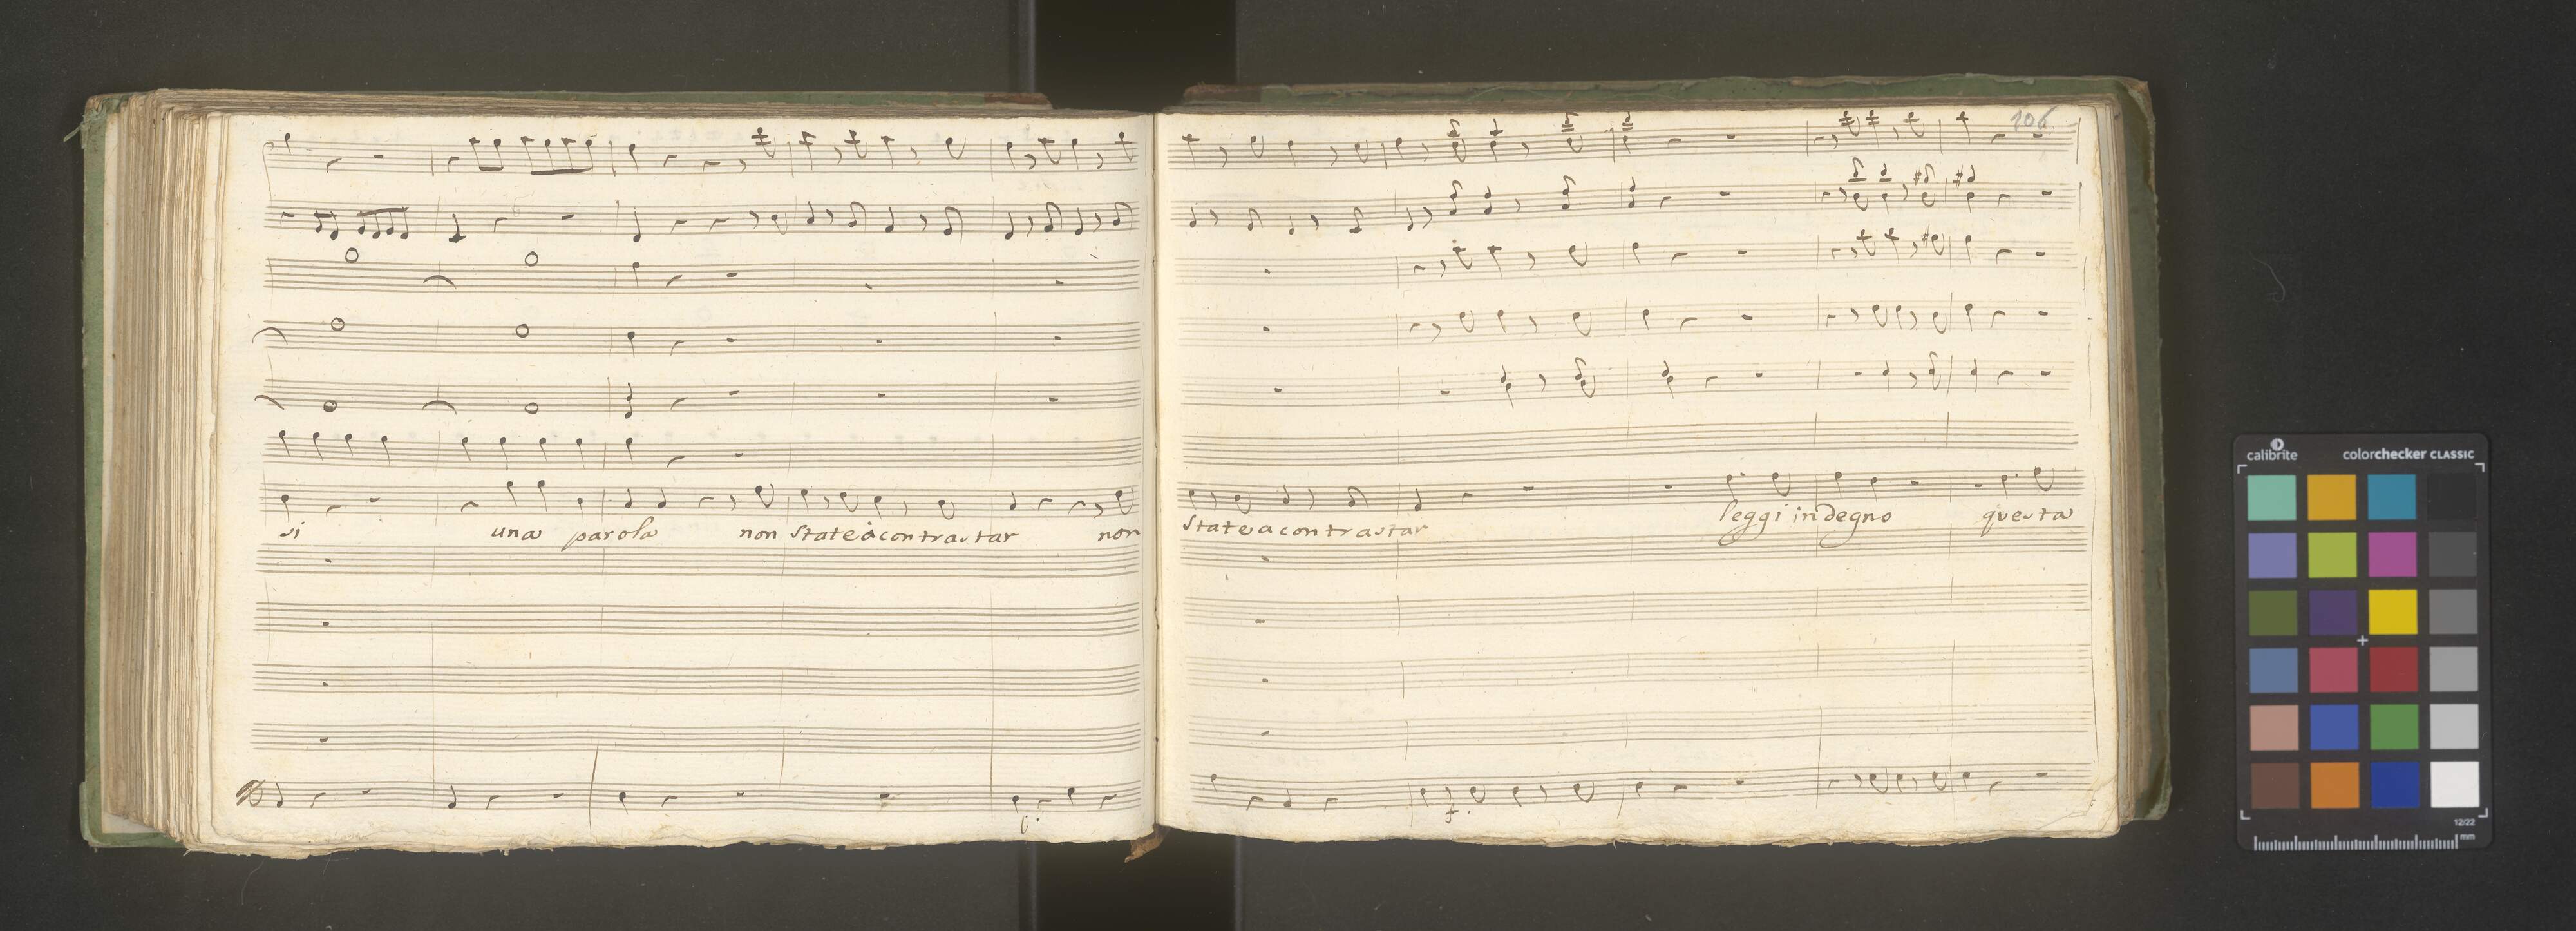 106
si una parola non state à contrastar non
state a contrastar leggi indegno questa
p:
f.
calibrite colorchecker CLASSIC
12/22
mm